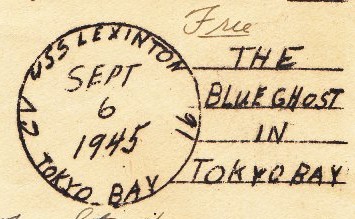 Free
USS LEXINTON
CV 16
SEPT
6
1945
TOKYO BAY
THE
BLUE GHOST
IN
TOKYO BAY